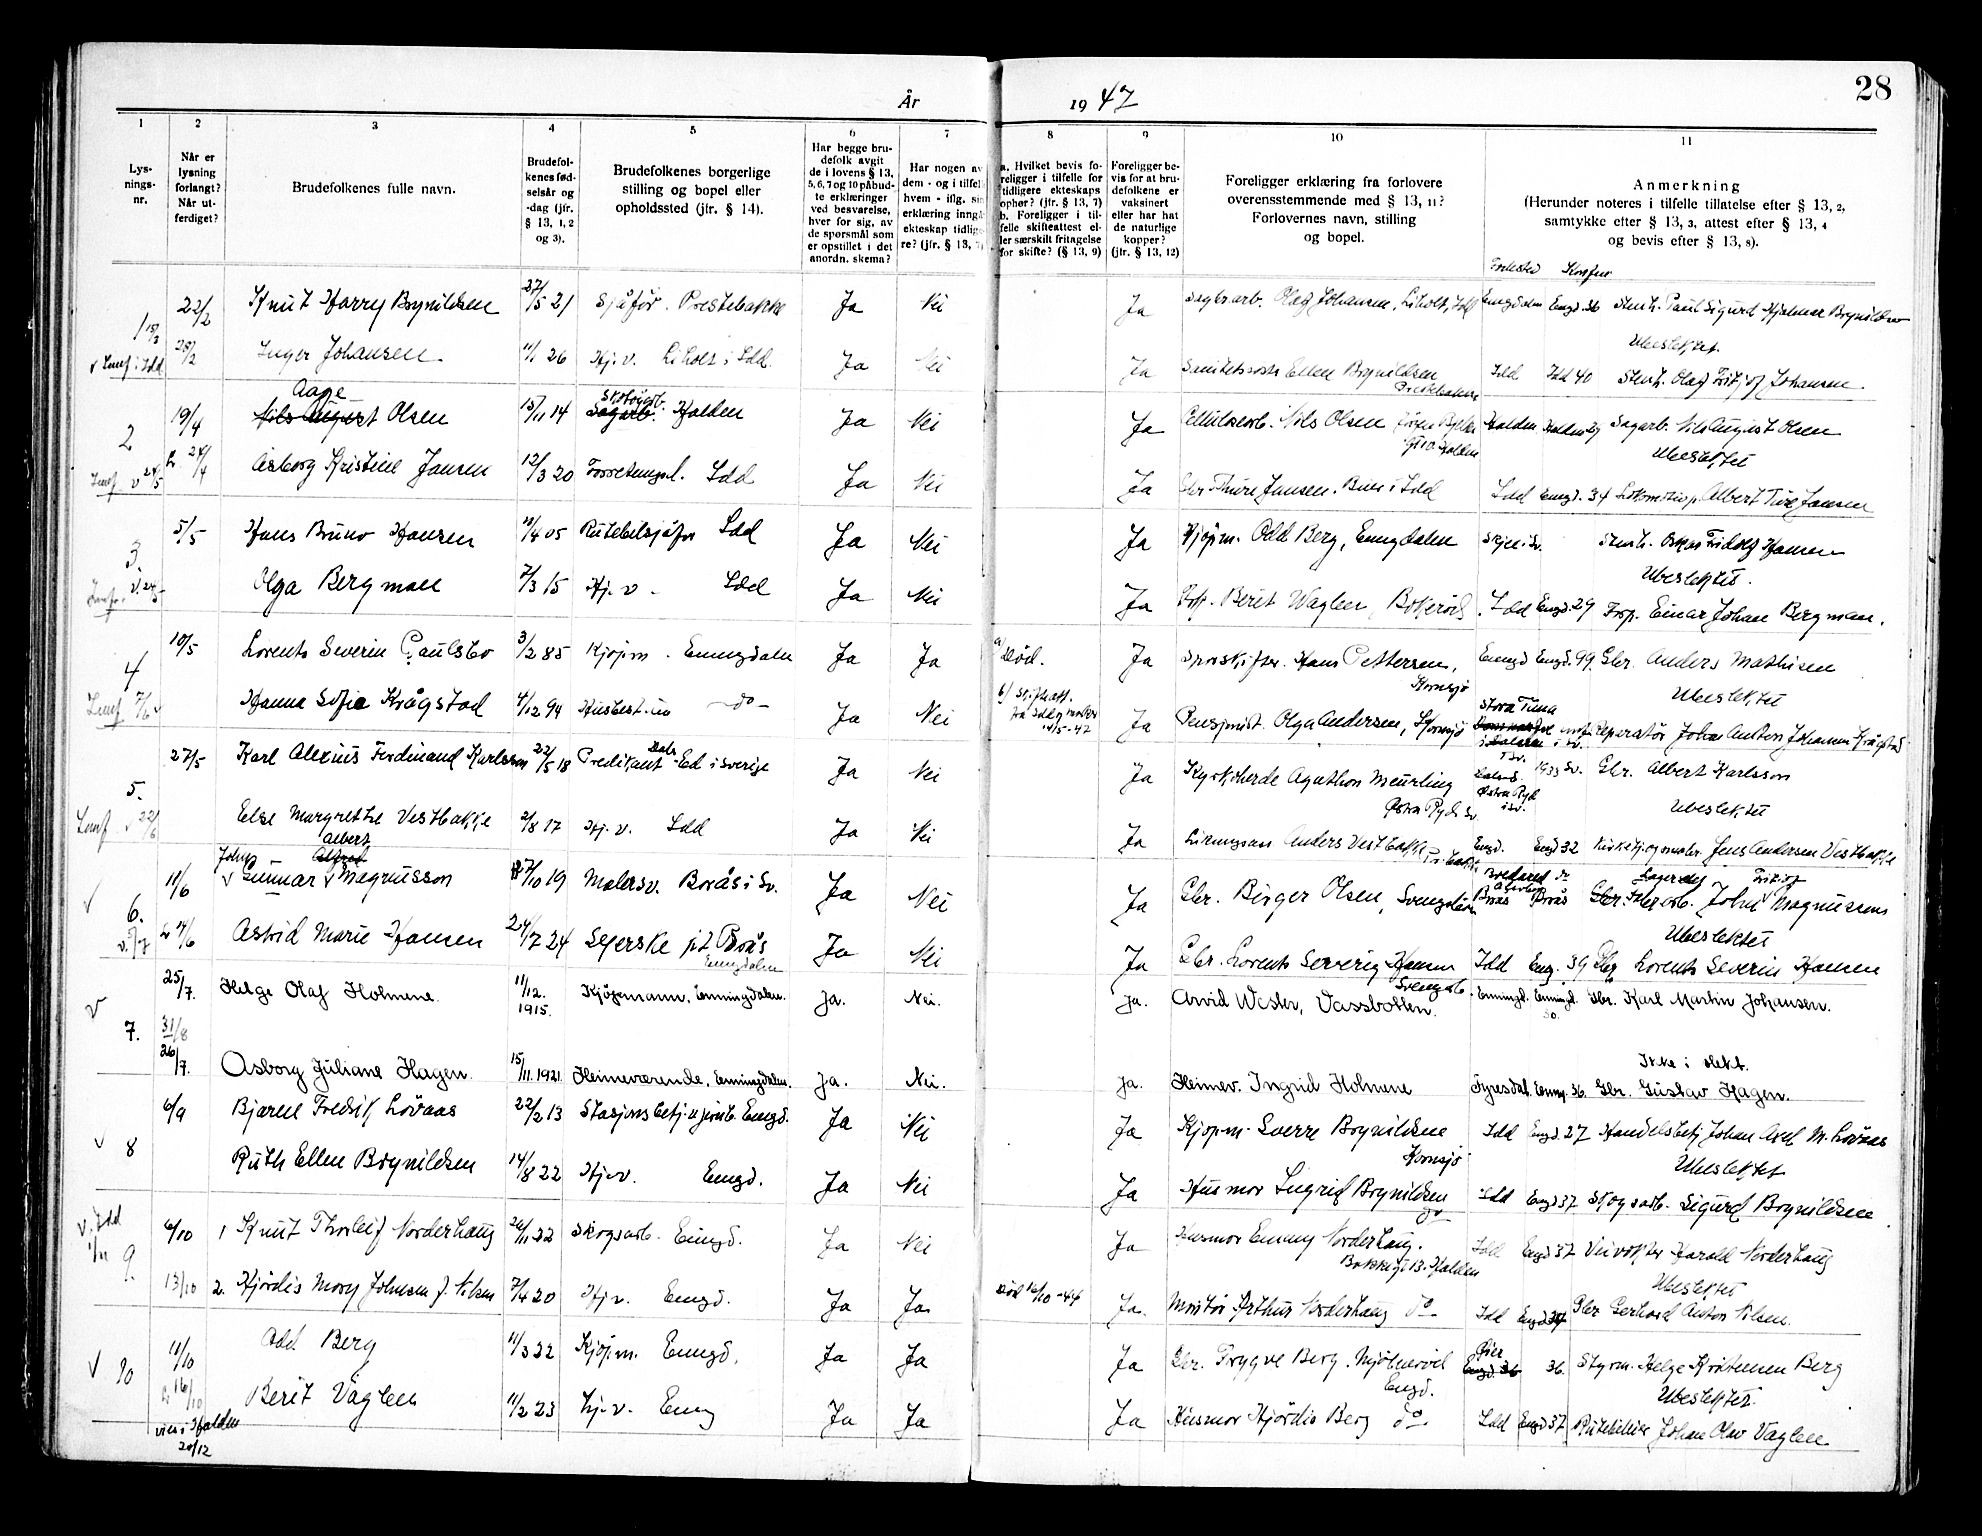 År 1947
28
1 2 3 4 5 6 7 8 9 10 11
Lys-
nings-
nr.
Når er
lysning
forlangt?
Når ut-
ferdiget?
Brudefolkenes fulle navn.
Brudefol-
kenes fød-
selsår og
-dag (jfr.
§ 13, 1, 2
og 3).
Brudefolkenes borgerlige
stilling og bopel eller
opholdssted (jfr. § 14).
Har begge bru-
defolk avgit
de i lovens § 13,
5, 6, 7 og 10 påbud-
te erklæringer
ved besvarelse,
hver for sig, av
de spørsmål som
er opstillet i det
anordn. skema?
Har nogen av
dem - og i tilfelle
hvem - iflg. sin
erklæring inngå
ekteskap tidlige-
re? (jfr. § 13, 7)
a. Hvilket bevis fo-
religger i tilfelle for
tidligere ekteskaps
ophør? (jfr. § 13, 7)
b. Foreligger i til-
felle skifteattest el-
ler særskilt fritagelse
for skifte? (§ 13, 9)
Foreligger be-
vis for at bru-
defolkene er
vaksinert
eller har hat
de naturlige
kopper?
(jfr. § 13, 12)
Foreligger erklæring fra forlovere
overensstemmende med § 13, 11?
Forlovernes navn, stilling
og bopel.
Anmerkning
(Herunder noteres i tilfelle tillatelse efter § 13, 2,
samtykke efter § 13, 3, attest efter § 13, 4
og bevis efter § 13, 8).
Fødested Konfir
1 22/2 Knut Harry Brynildsen 27/5 21 Sjåfør. Prestebakke Ja Nei Ja Sagbr.arb. Olaf Johansen, Liholt, Idd Enngdalen Engd. 36 Stenh. Paul Sigurd Hjalmar Brynildsen
Ubeslektet.
28/2 Inger Johansen 11/1 26 Hj.v. Liholt i Idd. Ja Nei Ja Ellen Brynildsen Prestebakke Idd Idd 40 Stenh. Olaf Fritjof Johansen.
2 19/4 Nils August Aage Olsen 15/11 14 Sagarb. Skotøyarb. Halden Ja Nei Ja Celluloserb. Nils Olsen Halden Halden Halden 29 Sagarb. Nils August Olsen
Ubeslektet
24/4 Asborg Kristine Jansen 12/3 20 Idd Ja Nei Ja Gbr. Thure Jansen. Buer i Idd Idd Enngd. 34 Albert Ture Jansen
3. 5/5 Hans Bruno Hansen 10/4 05 Rutebilsjåfør Idd Ja Nei Ja Kjøpm. Odd Berg, Enngdalen Skjee i Sv. Stenh. Oskar Fridolf Hansen
Ubeslektet.
Olga Bergman 7/3 15 Hj.v. Idd Ja Nei Ja Berit Vaglen, Bokerød Idd Engd. 29 Einar Johan Bergman.
4 10/5 Lorents Severin Paulsbo 3/2 85 Kjøpm. Enningdalen Ja Ja a) Død. Ja Hans Pettersen, Kornsjø Enngd Engd. 99 Gbr. Anders Mathisen
Ubeslektet
Hanna Sofie Krågstad 4/12 94 do Ja Nei b) Skifteatt. fra Idd og Marker 14/5-47 Ja Pensjonist. Olga Andersen, Kornsjø Stora Tuna Reperatør Johan Anton Krågstad
5. 27/5 Karl Alexius Ferdinand Karlsson 22/5 18 Predikant Dals Ed i Sverige Ja Nei Ja Kyrkoherde Agathon Meurling Østra Ryd Sv. Østra Ryd i Sv. 1933 Sv. Gbr. Albert Karlsson
Ubeslektet
Else Margrethe Vestbakke 2/8 17 Hj.v. Idd Ja Nei Ja Anders Vestbakke Engd. Engd 32 Jens Andersen Vestbakke
6. 11/6 John Gunnar Alfred Albert Magnusson 27/10 19 Malersv. Borås i Sv. Ja Nei Ja Gbr. Birger Olsen, Borås Borås Lagerarb. John Fritiof Magnusson
Ubeslektet
14/6 Astrid Marie Hansen 24/7 24 Syerske p.t. Borås Enngdalen Ja Nei Ja Gbr. Lorents Severin Hansen Idd Eng. 39 Gbr Lorents Severin Hansen
7. 25/7. 31/8 Helge Olaf Holmene. 11/12. 1915. Kjøpmann, Enningdalen. Ja. Nei. Ja. Arvid Wester, Vassbotten. Enningd. Enningd. 30. Gbr. Karl Martin Johansen.
Ikke i slekt.
26/7. Asborg Juliane Hagen. 15/11. 1921. Heimeværende, Enningdalen. Ja. Nei. Ja. Heimev. Ingrid Holmene Fyresdal. Enng. 36. Gbr. Gustav Hagen.
8 6/9 Bjarne Fredrik Løvaas 22/2 13 Stasjonsbetj. v. jernb. Enngd. Ja Nei Ja Kjøpm. Sverre Brynildsen Kornsjø Idd Engd. 27 Handelsbetj Johan Axel M. Løvaas
Ubeslektet
Ruth Ellen Brynildsen 14/8 22 Hj.v. Enngd. Ja Nei Ja Husmor Ingrid Brynildsen do Idd Engd 37 Skogsarb. Sigurd Brynildsen
9. 6/10 1 Knut Thorleif Norderhaug 26/11 22 Skogsarb. Enngd. Ja Nei Ja Husmor Emmy Norderhaug. Bakkegt 13. Halden Idd Engd 37 Harald Norderhaug
Ubeslektet
13/10 2. Hjørdis Mary Johnsen f. Nilsen 7/4 20 Hj.v. Enngd. Ja Ja. Død 16/10-44 Ja. Montør Arthur Norderhaug do Idd Engd 34 Gbr Gerhard Anton Nilsen.
10 11/10 Odd Berg 11/3 22 Kjøpm. Enngd. Ja Ja Ja Gbr. Trygve Berg. Mjølnerød Engd. Engd. 36 36 Styrm. Helge Kristensen Berg
Ubeslektet.
16/10 Berit Vaglen 11/2 23 Hj.v. Enng Ja Ja Ja Husmor Hjørdis Berg do. Idd Engd 37 Rutebileier Johan Olav Vaglen
viet i Halden
20/12